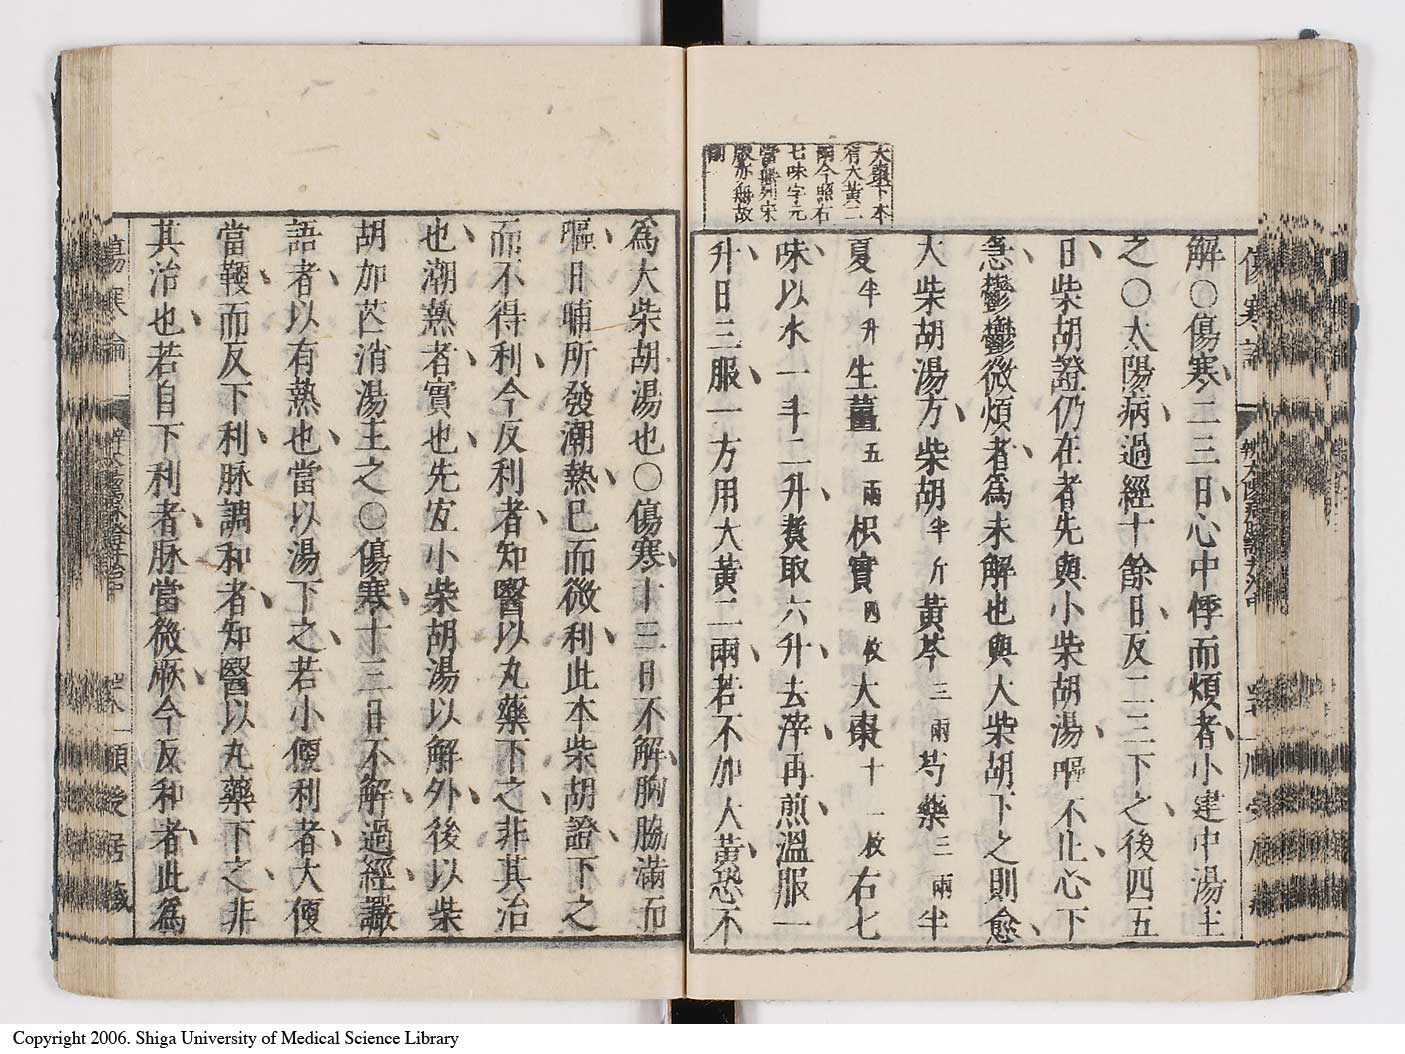 大棗下本
有大黃二
兩今照右
七味字元
當無列宋
版亦無故
刪
傷寒論
解○傷寒二三日心中悸而煩者小建中湯主
之○太陽病過經十餘日反二三下之後四五
日柴胡證仍在者先與小柴胡湯嘔不止心下
急鬱鬱微煩者為未解也與大柴胡下之則愈
大柴胡湯方柴胡半斤黃芩三兩芍藥三兩半
夏半升生薑五兩枳實四枚大棗十一枚右七
味以水一斗二升煑取六升去滓再煎溫服一
升日三服一方用大黃二兩若不加大黃恐不
為大柴胡湯也○傷寒十三日不解胸脇滿而
嘔日晡所發潮熱已而微利此本柴胡證下之
而不得利今反利者知醫以丸藥下之非其治
也潮熱者實也先宜小柴胡湯以解外後以柴
胡加芒消湯主之○傷寒十三日不解過經讝
語者以有熱也當以湯下之若小便利者大便
當鞕而反下利脉調和者知醫以丸藥下之非
其治也若自下利者脉當微厥今反和者此為
傷寒論
Copyright 2006. Shiga University of Medical Science Library